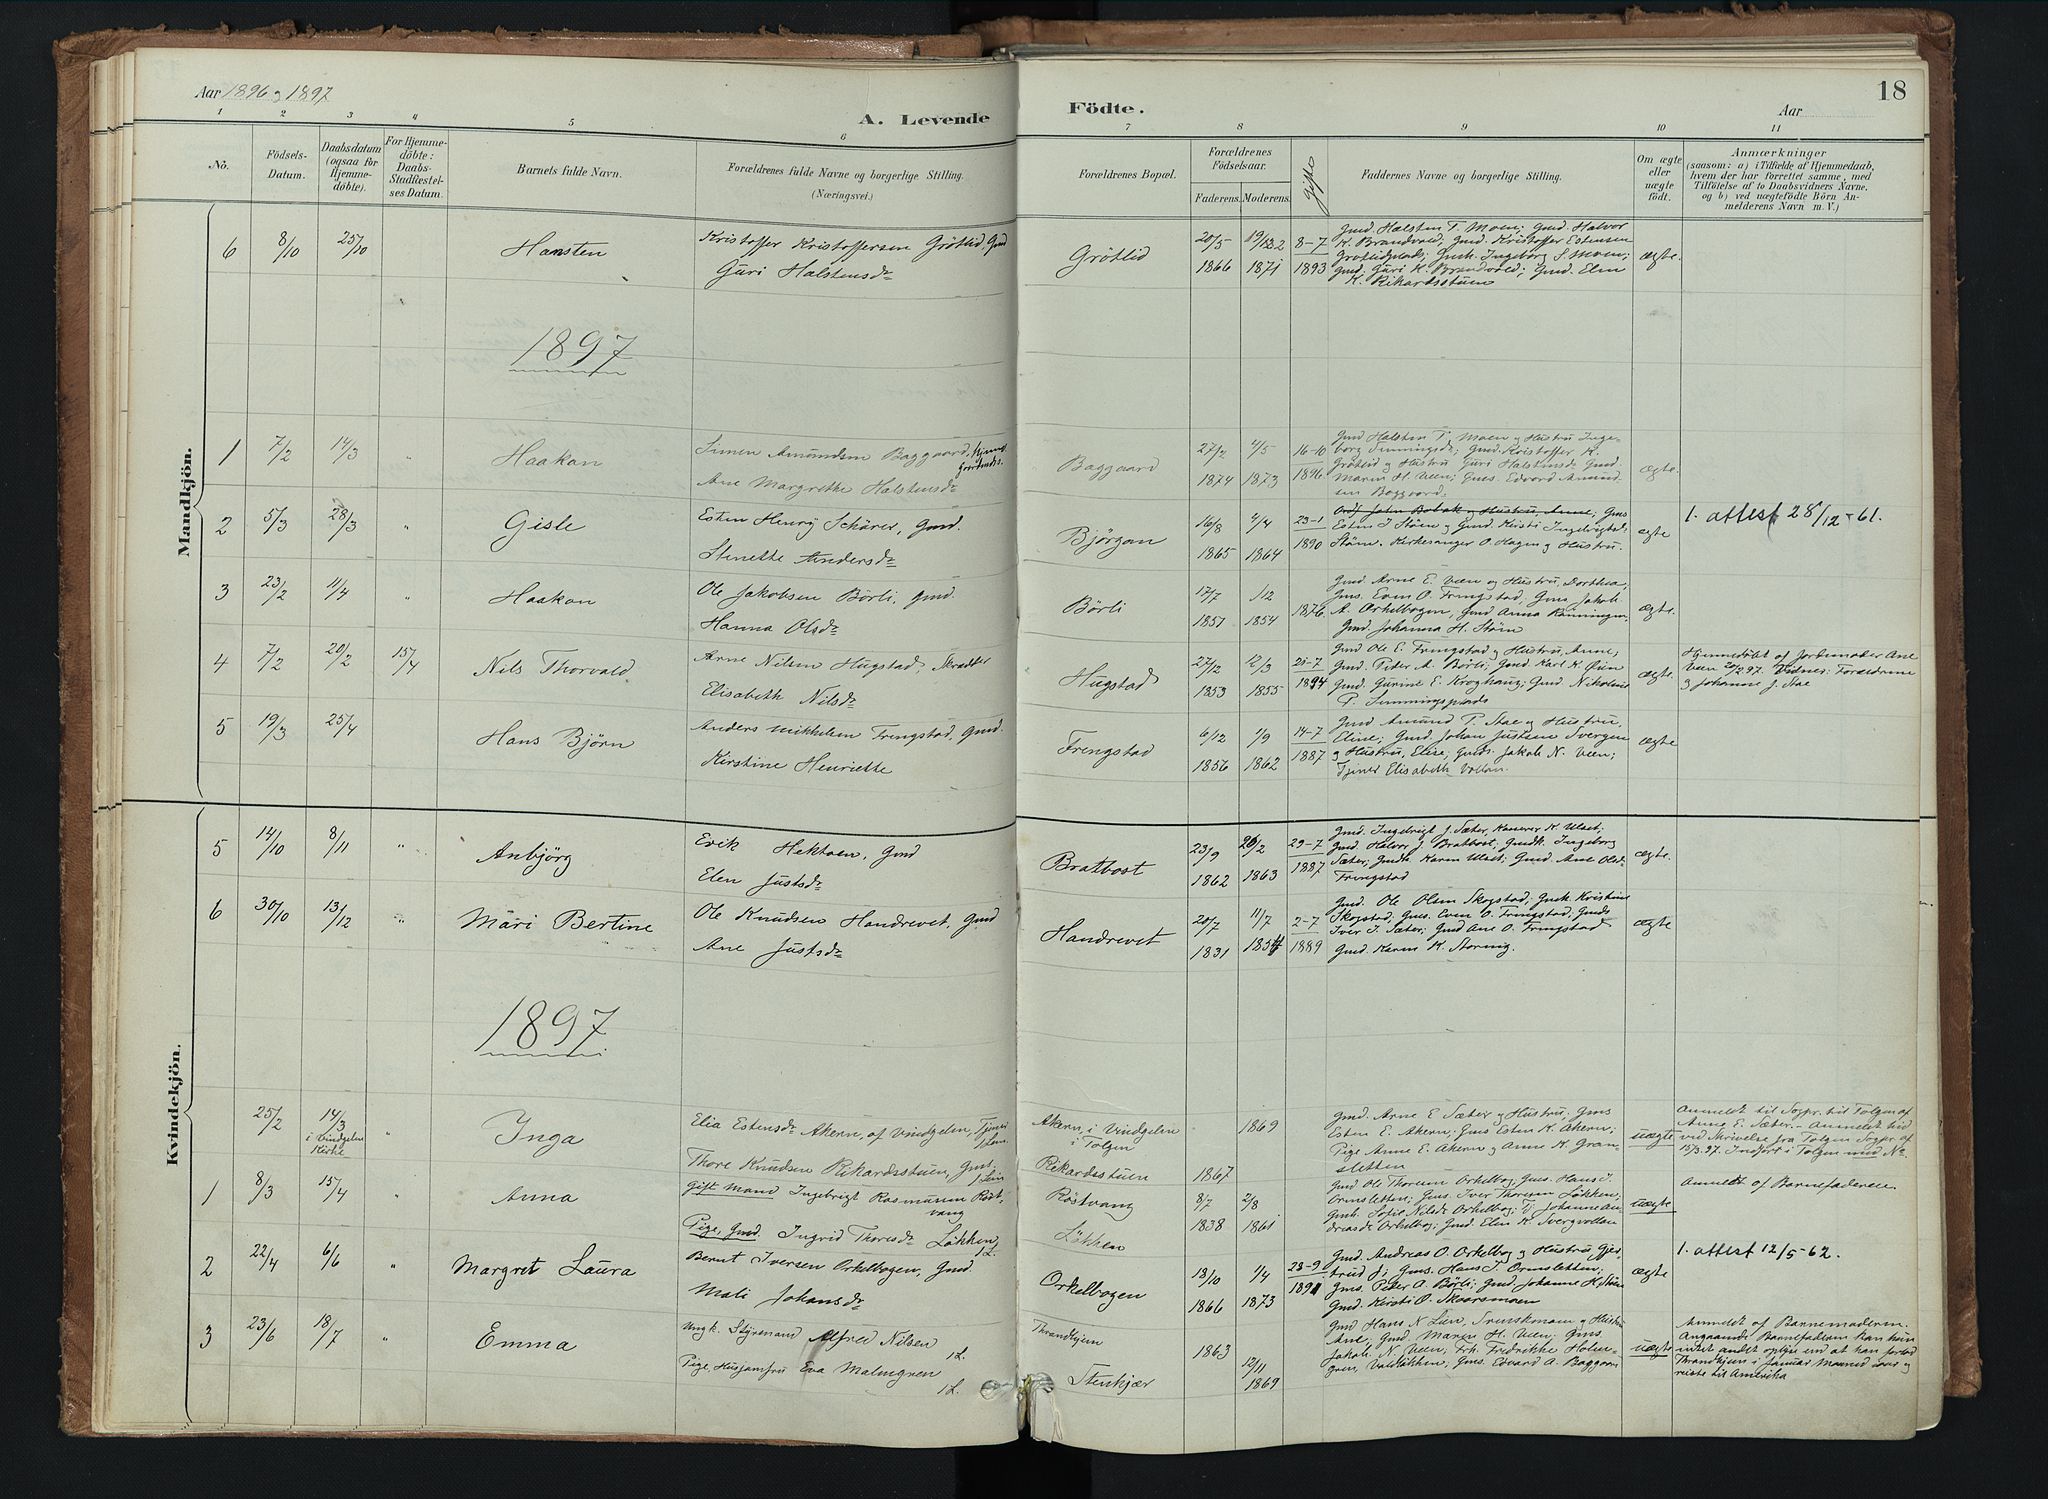 Aar 1896 og 1897
A. Levende
Födte.
Aar
18
1 2 3 4 5 6 7 8 9 10 11
No.
Födsels-Datum.
Daabsdatum (ogsaa for Hjemme-döbte).
For Hjemme-döbte: Daabs-Stadfæstel-ses Datum.
Barnets fulde Navn.
Forældrenes fulde Navne og borgerlige Stilling. (Næringsvei.)
Forældrenes Bopæl.
Forældrenes Födselsaar.
Faderens. Moderens.
Gifte
Faddernes Navne og borgerlige Stilling.
Om ægte eller uægte födt.
Anmærkninger
(saasom: a) i Tilfælde af Hjemmedaab,
hvem der har forrettet samme, med
Tilföielse af to Daabsvidners Navne,
og b) ved uægtefödte Börn An-
melderens Navn m. V.)
Mandkjön.
6 8/10 25/10 Hansten Kristoffer Kristoffersen Grötlid, Gmd
Guri Halstensdr
Grötlid 20/5 1866 1871 8-7 1893
Gmd. Halsten T. Moen; Gmd. Halvor
K. Brandvold; Gmd. Kristoffer Estensen
Grötlidplads; Gmk. Ingeborg S. Moen;
Gmd. Guri H. Brandvold; Gmd. Elen
K. Rikardsstuen
ægte.
1897
1 7/2 14/3 " Haakon Simen Amundsen Baggaard,
Ane Margrethe Halstensdr
Baggaard 27/2 1874 4/5 1873 16-10 1896
Gmd Halsten T. Moen og Hustru Inge-
borg Simmingsdr; Gmd. Kristoffer K.
Grötlid og Hustru Guri Halstensdr Gmd.
Maren H. Veen; Gms. Edvard Amund-
sen Baggaard.
ægte.
2 5/3 28/3 " Gisle Esten Henry Schärer, Gmd.
Stenette Andersdr
Bjørgan 16/8 1865 4/4 1864 23-1 1890
Ordf John Bobak og Hustru, Anne; Gms
Esten J Stöen og Gmd. Kirsti Ingebrigtsdr
Stöen. Kirkesanger O. Hagen og Hustru.
ægte
1. attest 28/12-61.
3 23/2 11/4 " Haakon Ole Jakobsen Börli, Gmd.
Hanna Olsdr
Börli 17/7 1851 1/12 1854 1876
Gmd. Arne E. Veen og Hustru, Dorthea,
Gms. Even O. Frengstad; Gms Jakob
A. Orkelbogen, Gmd Anna Rönningen,
Gmd. Johanna H. Stöen
ægte.
4 7/2 20/2 15/4 Nils Thorvald Arne Nilsen Hugstad, Skrædder
Elisabeth Nilsdr
Hugstad 27/12 1853 12/3 1855 1894
Gmd Ole E. Frengstad og Hustru, Anne;
Gmd. Peter A. Börli; Gmd. Karl K. Öien
Gmd. Gurine E. Kroghaug; Gmd. Nikolaus
P. Simmingsplads
ægte.
Hjemmedöbt af Jordemoder Ane
Veen 20/2 97. Vidner: Forældrene
og Johanne J. Stae
5 19/3 25/4 Hans Björn Anders Mikkelsen Frengstad, Gmd.
Kirstine Henriette
Frengstad 6/12 1856 1/9 1862 14-7 1887
Gmd Amund P. Stae og Hustru,
Eline; Gmd. Johan Justsen Svergen
og Hustru, Elise; Gmds. Jakob N. Veen;
Tjener Elisabeth Vollan.
ægte
Kvindekjön.
5 14/10 8/11 " Anbjörg Erik Hektoen, Gmd
Elen Justsdr
Bratbost 23/9 1862 26/2 1863 29-7 1887
Gmd. Ingebrigt J. Sæter, Kanerer K. Ulset;
Gmd. Halvor J. Bratbost, Gmdk. Ingeborg
Sæter; Gmdk. Karen Ulset; Gmd. Ane Olsdr
Frengstad
ægte.
6 30/10 13/12 " Mari Bertine Ole Knudsen Handrevet, Gmd
Ane Justsdr
Handrevet 20/7 1831 11/7 1854 2-7 1889
Gmd. Ole Olsen Skogstad; Gmk Kristine
Skogstad, Gms. Even O. Frengstad; Gmds
Iver J. Sæter; Gmd Ane O. Frengstad
Gmd. Karen K. Storeng.
ægte
1897
25/2 14/3 i Vindgelen Kirke " Inga Elia Estensdr Akern, af Vindgelen, Tjener 1 Lem
Thore Knudsen Rikardsstuen, Gms. 1 Leir
Akern, i Vindgelen i Tolgen
Rikardsstuen 1867 1869
Gmd. Arne E Sæter og Hustru; Gms
Esten E. Akern; Gms Esten K. Akern;
Pige Anne E. Akern og Anne K. Gran-
sletten
uægte
Anmeldt til Sogpr. til Tolgen af
Arne E. Sæter. - Anmeldt hid
ved Skrivelse fra Tolgen Sogpr. af
15/3 97. Indfört i Tolgen med No
1 8/3 15/4 " Anna Gift Mand Ingebrigt Rasmussen Röst-
vang
Pige, Gmd. Ingrid Thoresdr Lökken, 1 L.
Röstvang
Lökken
8/7 1838 2/8 1861
Gmd Ole Thoresen Orkelbog, Gms. Hans J.
Ormsletten; Gms. Iver Thoresen Lökken;
Gmk. Sofie Nilsdr Orkelbog; Tj Johanne An-
dreasdr Orkelbog; Gmd. Elen K. Svergvollan
uægte
Anmeldt af Barnefaderen.
2 22/4 6/6 " Margret Laura Bernt Iversen Orkelbogen, Gmd.
Mali Johansdr
Orkelbogen 13/10 1866 1/4 1873 23-9 1891
Gmd. Andreas O. Orkelbog og Hustru Gjer-
trud J; Gms. Hans J Ormsletten;
Gms. Peter A. Börli; Gmd. Johanne H. Stöen
Gmd. Kirsti O. Skaarsmoen
ægte
1. attest 12/5-62.
3 23/6 18/7 " Emma Ungk. Styrmand Alfred Nilsen 1 L.
Pige, Husjomfru Eva Malmgren 1 L.
Thrandhjem
Stenkjær
1863 12/11 1869
Gmd Hans N Lien, Svenskemoen og Hustru
Ane, Gmd. Maren H. Veen; Gms.
Jakob N. Veen; Frk. Fredrikke Holm-
gren, Vaslökken; Gms. Edvard A. Baggaard
uægte
Anmeldt af Barnemoderen.
Angaaende Barnefaderen kan hun
intet andet oplyse end at han forlod
Thrandhjem i Januar Maaned iaar og
reiste til Amerika